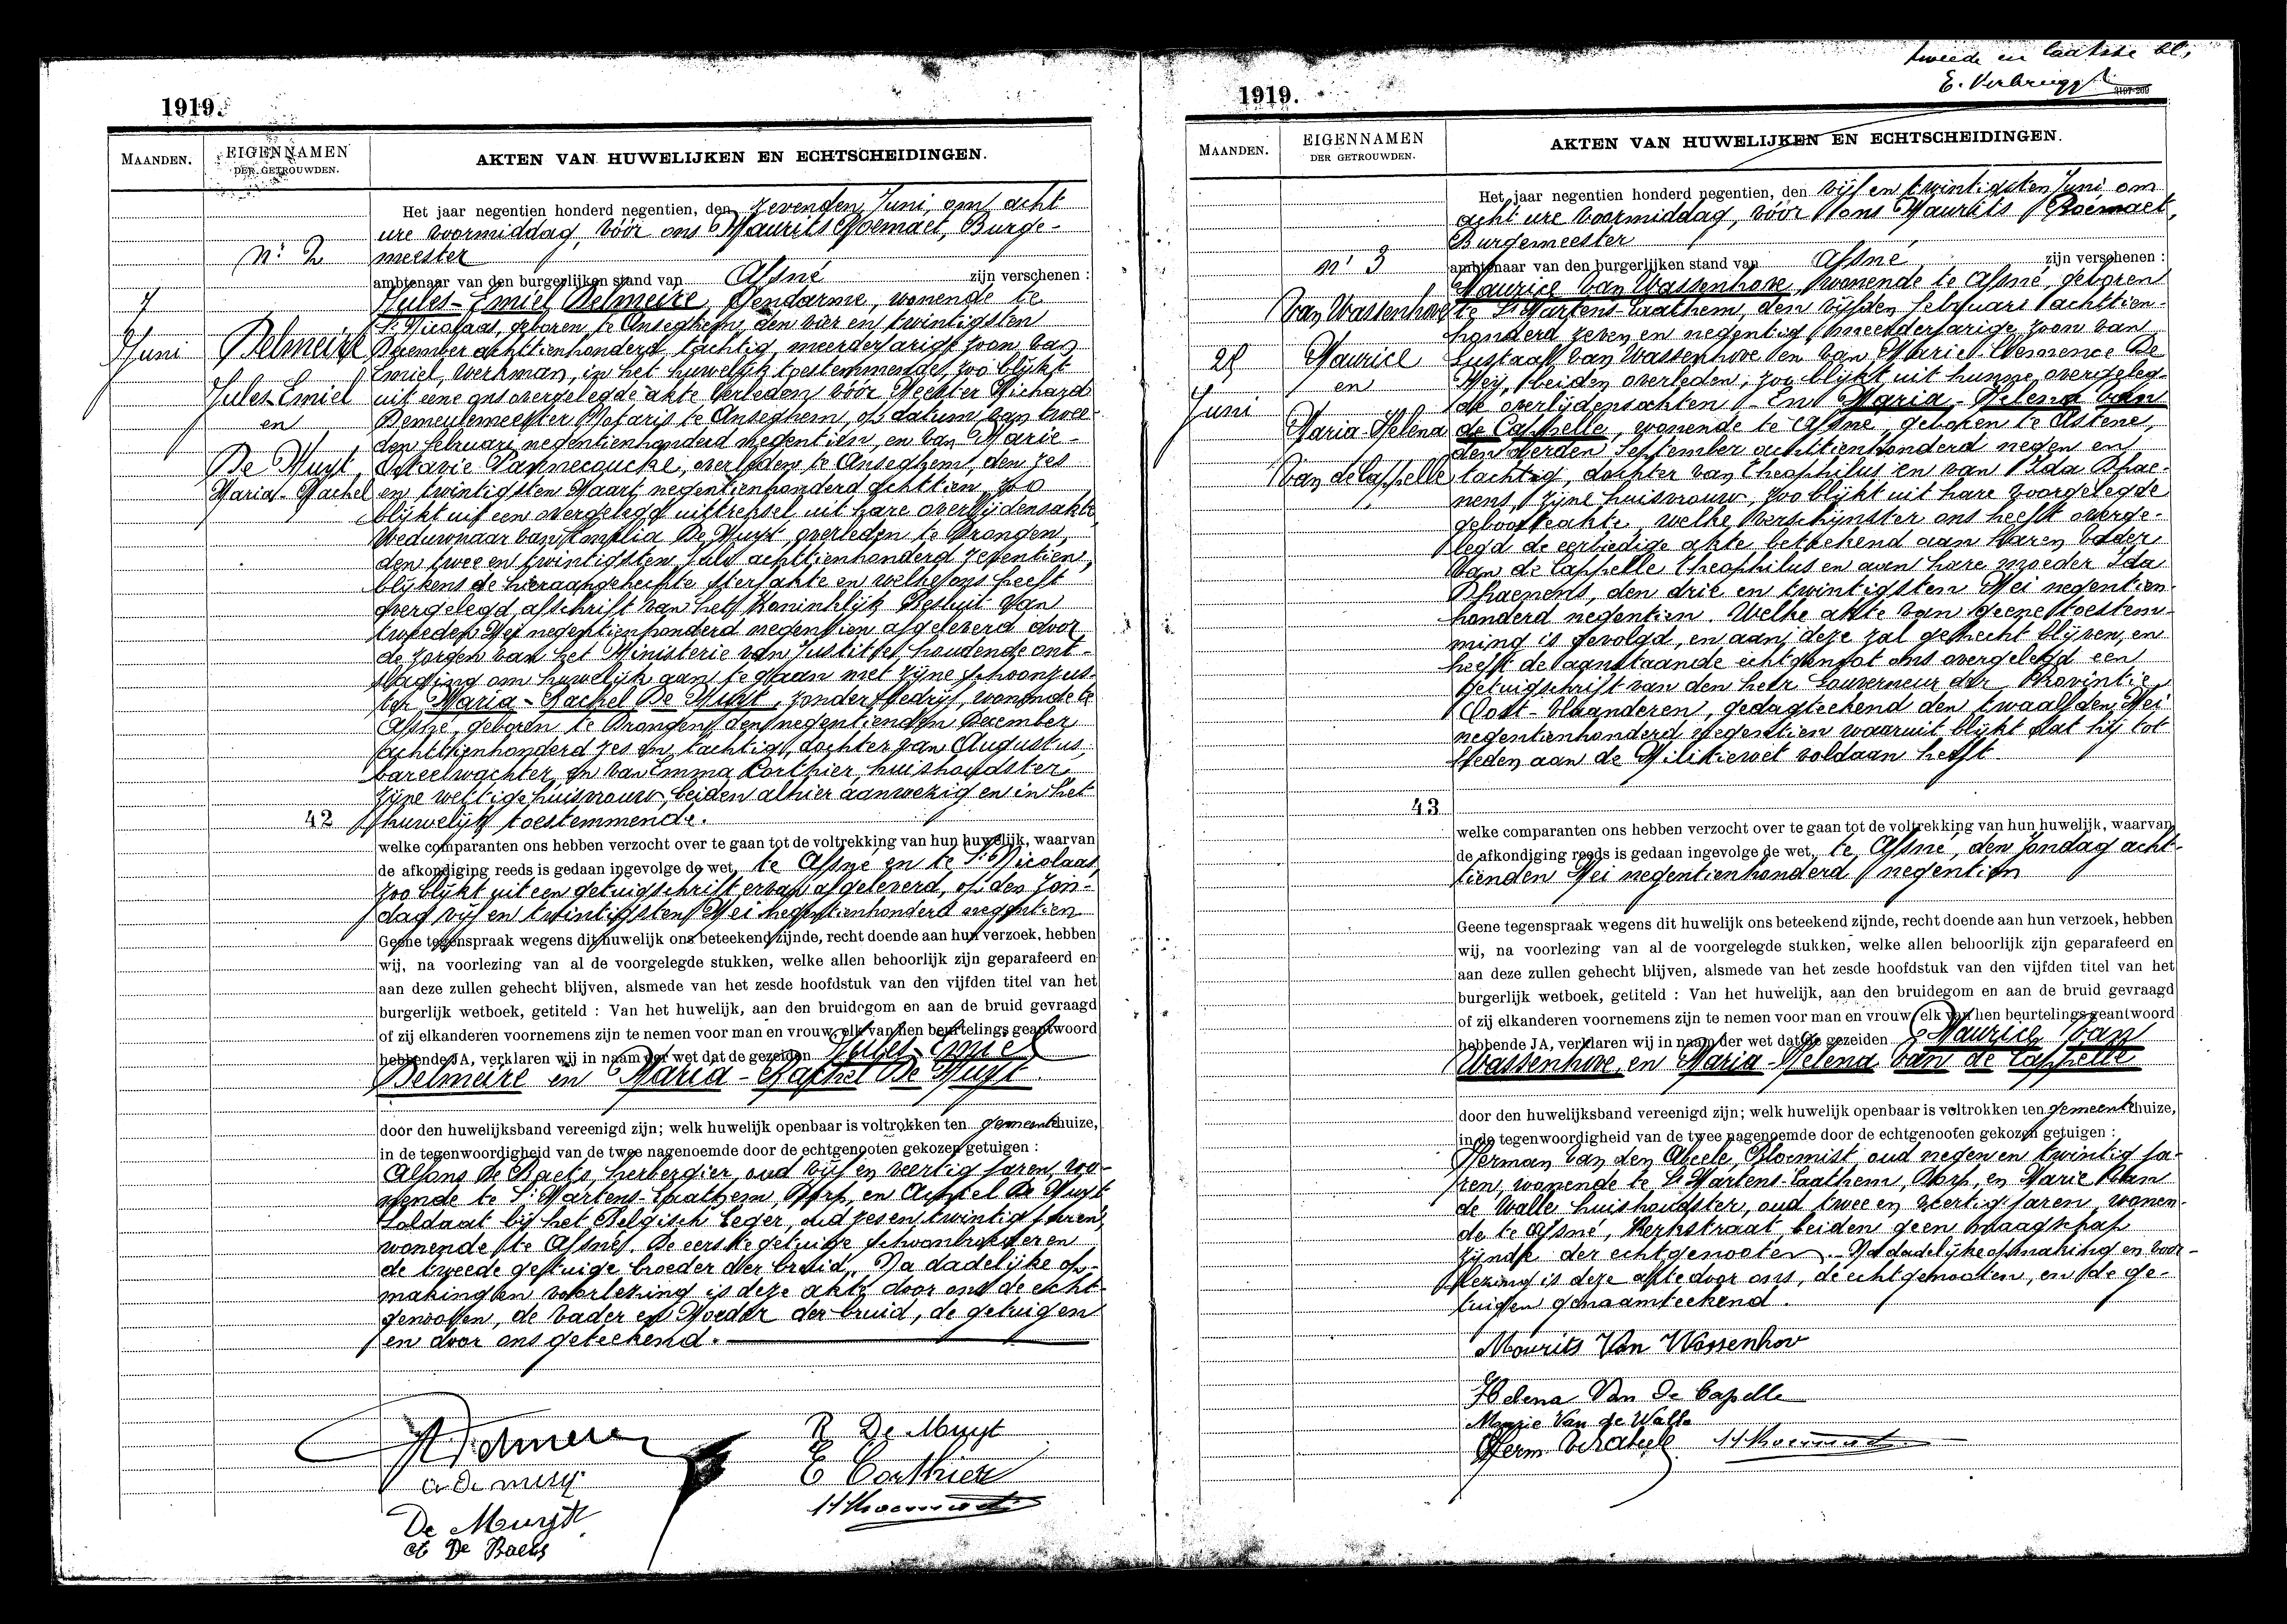 1919.
MAANDEN.
EIGENNAMEN
DER GETROUWDEN.
AKTEN VAN HUWELIJKEN EN ECHTSCHEIDINGEN.
Nr 2
7
Juni
Delmeire
Jules-Emiel
en
De Muyt
Maria-Rachel
Het jaar negentien honderd negentien, den zevenden Juni, om acht
ure voormiddag, vóór ons Maurits Roemaet, Burge-
meester
ambtenaar van den burgerlijken stand van Afsné zijn verschenen :
Jules-Emiel Delmeire, Gendarme, wonende te
St Nicolaas, geboren te Anseghem, den vier en twintigsten
December achttienhonderd tachtig, meerderjarige zoon van
Emiel, werkman, in het huwelijk toestemmende, zoo blijkt
uit eene ons overgelegde akte verleden vóór Meester Richard
Demeulemeester Notaris te Anseghem, op datum van twee-
den Februari negentienhonderd negentien, en van Marie-
Octavie Pannecoucke, overleden te Anseghem, den zes
en twintigsten Maart negentienhonderd achttien, zoo
blijkt uit een overgelegd uittreksel uit hare overlijdensakte
Weduwnaar van Pamelia De Muyt overleden te Drongen,
den twee en twintigsten Juli achttienhonderd zeventien,
blijkens de hieraangehechte sterfakte en welke ons heeft
overgelegd afschrift van het Koninklijk Besluit van
tweeden Mei negentienhonderd negentien afgeleverd door
de zorgen van het Ministerie van Justitie, houdende ont-
slaging om huwelijk aan te gaan met zijne schoonzus-
ter Maria-Rachel De Muyt, zonder bedrijf, wonende te
Afsné, geboren te Drongen, den negentienden December
achttienhonderd zes en tachtig, dochter van Augustus
bareelwachter, en van Emma Corthier, huishoudster,
zijne wettige huisvrouw, beiden alhier aanwezig en in het
42
huwelijk toestemmende.
welke comparanten ons hebben verzocht over te gaan tot de voltrekking van hun huwelijk, waarvan
de afkondiging reeds is gedaan ingevolge de wet, te Afsné en te St Nicolaas,
zoo blijkt uit een getuigschrift ervan afgeleverd, op den Zon-
dag vijf en twintigsten Mei negentienhonderd negentien
Geene tegenspraak wegens dit huwelijk ons beteekend zijnde, recht doende aan hun verzoek, hebben
wij, na voorlezing van al de voorgelegde stukken, welke allen behoorlijk zijn geparafeerd en
aan deze zullen gehecht blijven, alsmede van het zesde hoofdstuk van den vijfden titel van het
burgerlijk wetboek, getiteld : Van het huwelijk, aan den bruidegom en aan de bruid gevraagd
of zij elkanderen voornemens zijn te nemen voor man en vrouw, elk van hen beurtelings geantwoord
hebbende JA, verklaren wij in naam der wet dat de gezeiden Jules-Emiel
Delmeire en Maria-Rachel De Muyt
door den huwelijksband vereenigd zijn; welk huwelijk openbaar is voltrokken ten gemeentehuize,
in de tegenwoordigheid van de twee nagenoemde door de echtgenooten gekozen getuigen :
Alfons De Baets, herbergier, oud vijf en veertig jaren, wo-
nende te St Martens-Laathem, Dorp, en Achiel De Muyt
Soldaat bij het Belgisch Leger, oud zes en twintig jaren,
wonende te Afsné. De eerste getuige schoonbroeder en
de tweede getuige broeder der bruid. Na dadelijke op-
making en voorlezing is deze akte door ons de echt-
genooten, de vader en Moeder der bruid, de getuigen
en door ons geteekend.
R De Muyt
E Corthier
De Muyt
A De Baets
tweede en laatste bl,
E. Verbrugg
1919.
MAANDEN.
EIGENNAMEN
DER GETROUWDEN.
AKTEN VAN HUWELIJKEN EN ECHTSCHEIDINGEN.
nr 3
Van Wassenhove
25
Juni
Maurice
en
Maria Helena
Van de Cappelle
Het jaar negentien honderd negentien, den vijf en twintigsten Juni om
acht ure voormiddag, vóór ons Maurits Roemaet,
Burgemeester
ambtenaar van den burgerlijken stand van Afsné zijn verschenen :
Maurice Van Wassenhove, wonende te Afsné, geboren
te St Martens-Laathem, den vijfden februari achttien-
honderd zeven en negentig, meerderjarige zoon van
Eustaaf van Wassenhove en van Marie-Clemence De
Mey, beiden overleden, zoo blijkt uit hunne overgeleg-
de overlijdensakten - En Maria-Helena van
de Cappelle, wonende te Afsné, geboren te Astene,
den derden September achttienhonderd negen en
tachtig, dochter van Theophilus en van Ida Dhae-
nens, zijne huisvrouw, zoo blijkt uit hare voorgelegde
geboorteakte, welke verschijnster ons heeft overge-
legd de eerbiedige akte beteekend aan haren vader
Van de Cappelle Theophilus en aan hare moeder Ida
Dhaenens, den drie en twintigsten Mei negentien-
honderd negentien. Welke akte van geene toestem-
ming is gevolgd, en aan deze zal gehecht blijven, en
heeft de aanstaande echtgenoot ons overgelegd een
getuigschrift van den heer Gouverneur der Provintie
Oost-Vlaanderen, gedagteekend den twaalfden Mei
negentienhonderd negentien waaruit blijkt dat hij tot
heden aan de Militiewet voldaan heeft.
43
welke comparanten ons hebben verzocht over te gaan tot de voltrekking van hun huwelijk, waarvan
de afkondiging reeds is gedaan ingevolge de wet, te Afsné, den Zondag acht-
tienden Mei negentienhonderd negentien
Geene tegenspraak wegens dit huwelijk ons beteekend zijnde, recht doende aan hun verzoek, hebben
wij, na voorlezing van al de voorgelegde stukken, welke allen behoorlijk zijn geparafeerd en
aan deze zullen gehecht blijven, alsmede van het zesde hoofdstuk van den vijfden titel van het
burgerlijk wetboek, getiteld : Van het huwelijk, aan den bruidegom en aan de bruid gevraagd
of zij elkanderen voornemens zijn te nemen voor man en vrouw, elk van hen beurtelings geantwoord
hebbende JA, verklaren wij in naam der wet dat de gezeiden Maurice Van
Wassenhove en Maria-Helena Van de Cappelle
door den huwelijksband vereenigd zijn; welk huwelijk openbaar is voltrokken ten gemeentehuize,
in de tegenwoordigheid van de twee nagenoemde door de echtgenooten gekozen getuigen :
Herman Van den Abeele, Bloemist oud negen en twintig ja-
ren, wonende te St Martens-Laathem, Dorp, en Marie Van
de Walle huishoudster, oud twee en veertig jaren, wonen-
de te Afsné, Kerkstraat, beiden geen maagschap
zijnde der echtgenooten. - Na dadelijke opmaking en voor-
lezing is deze akte door ons, de echtgenooten, en de ge-
tuigen genaamteekend.
Maurits Van Wassenhov
Helena Van De Capelle
Marie Van de Walle